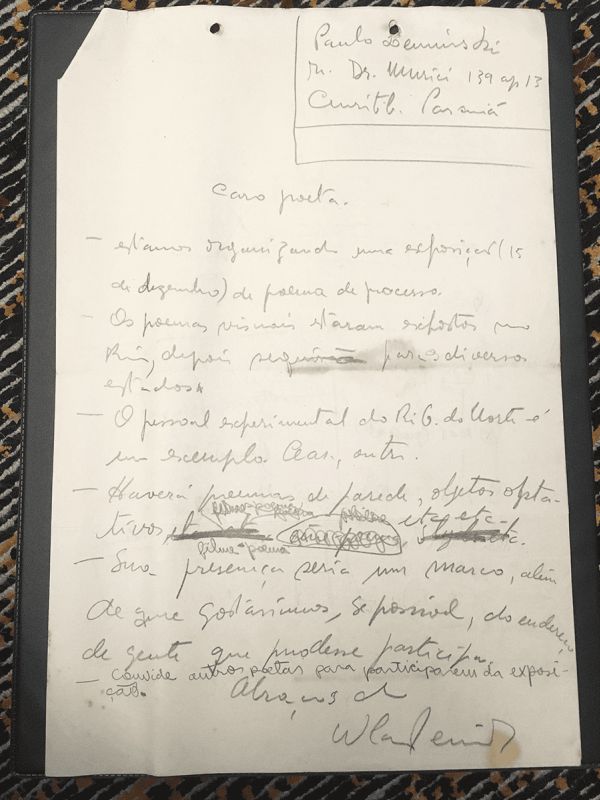 Paulo Leminski
R. Dr. Murici 139 ap 13
Curitib. Paraná
Caro poeta.
— estamos organizando uma exposição (15
de dezembro) de poema de processo.
— Os poemas visuais estaram expostos no
Rio, depois para os diversos
estados.
— O pessoal experimental do Ri G. do Norte é
um exemplo. Cea., outri.
— Haverá poemas de parede, objetos opta-
tivos, etc, etc.
filme-poema
— Sua presença seria um marco, além
de que gostaríamos, se possível, do endereço
de gente que pudesse participar.
— Convide outros poetas para participarem da exposi-
ção.
Abraços d